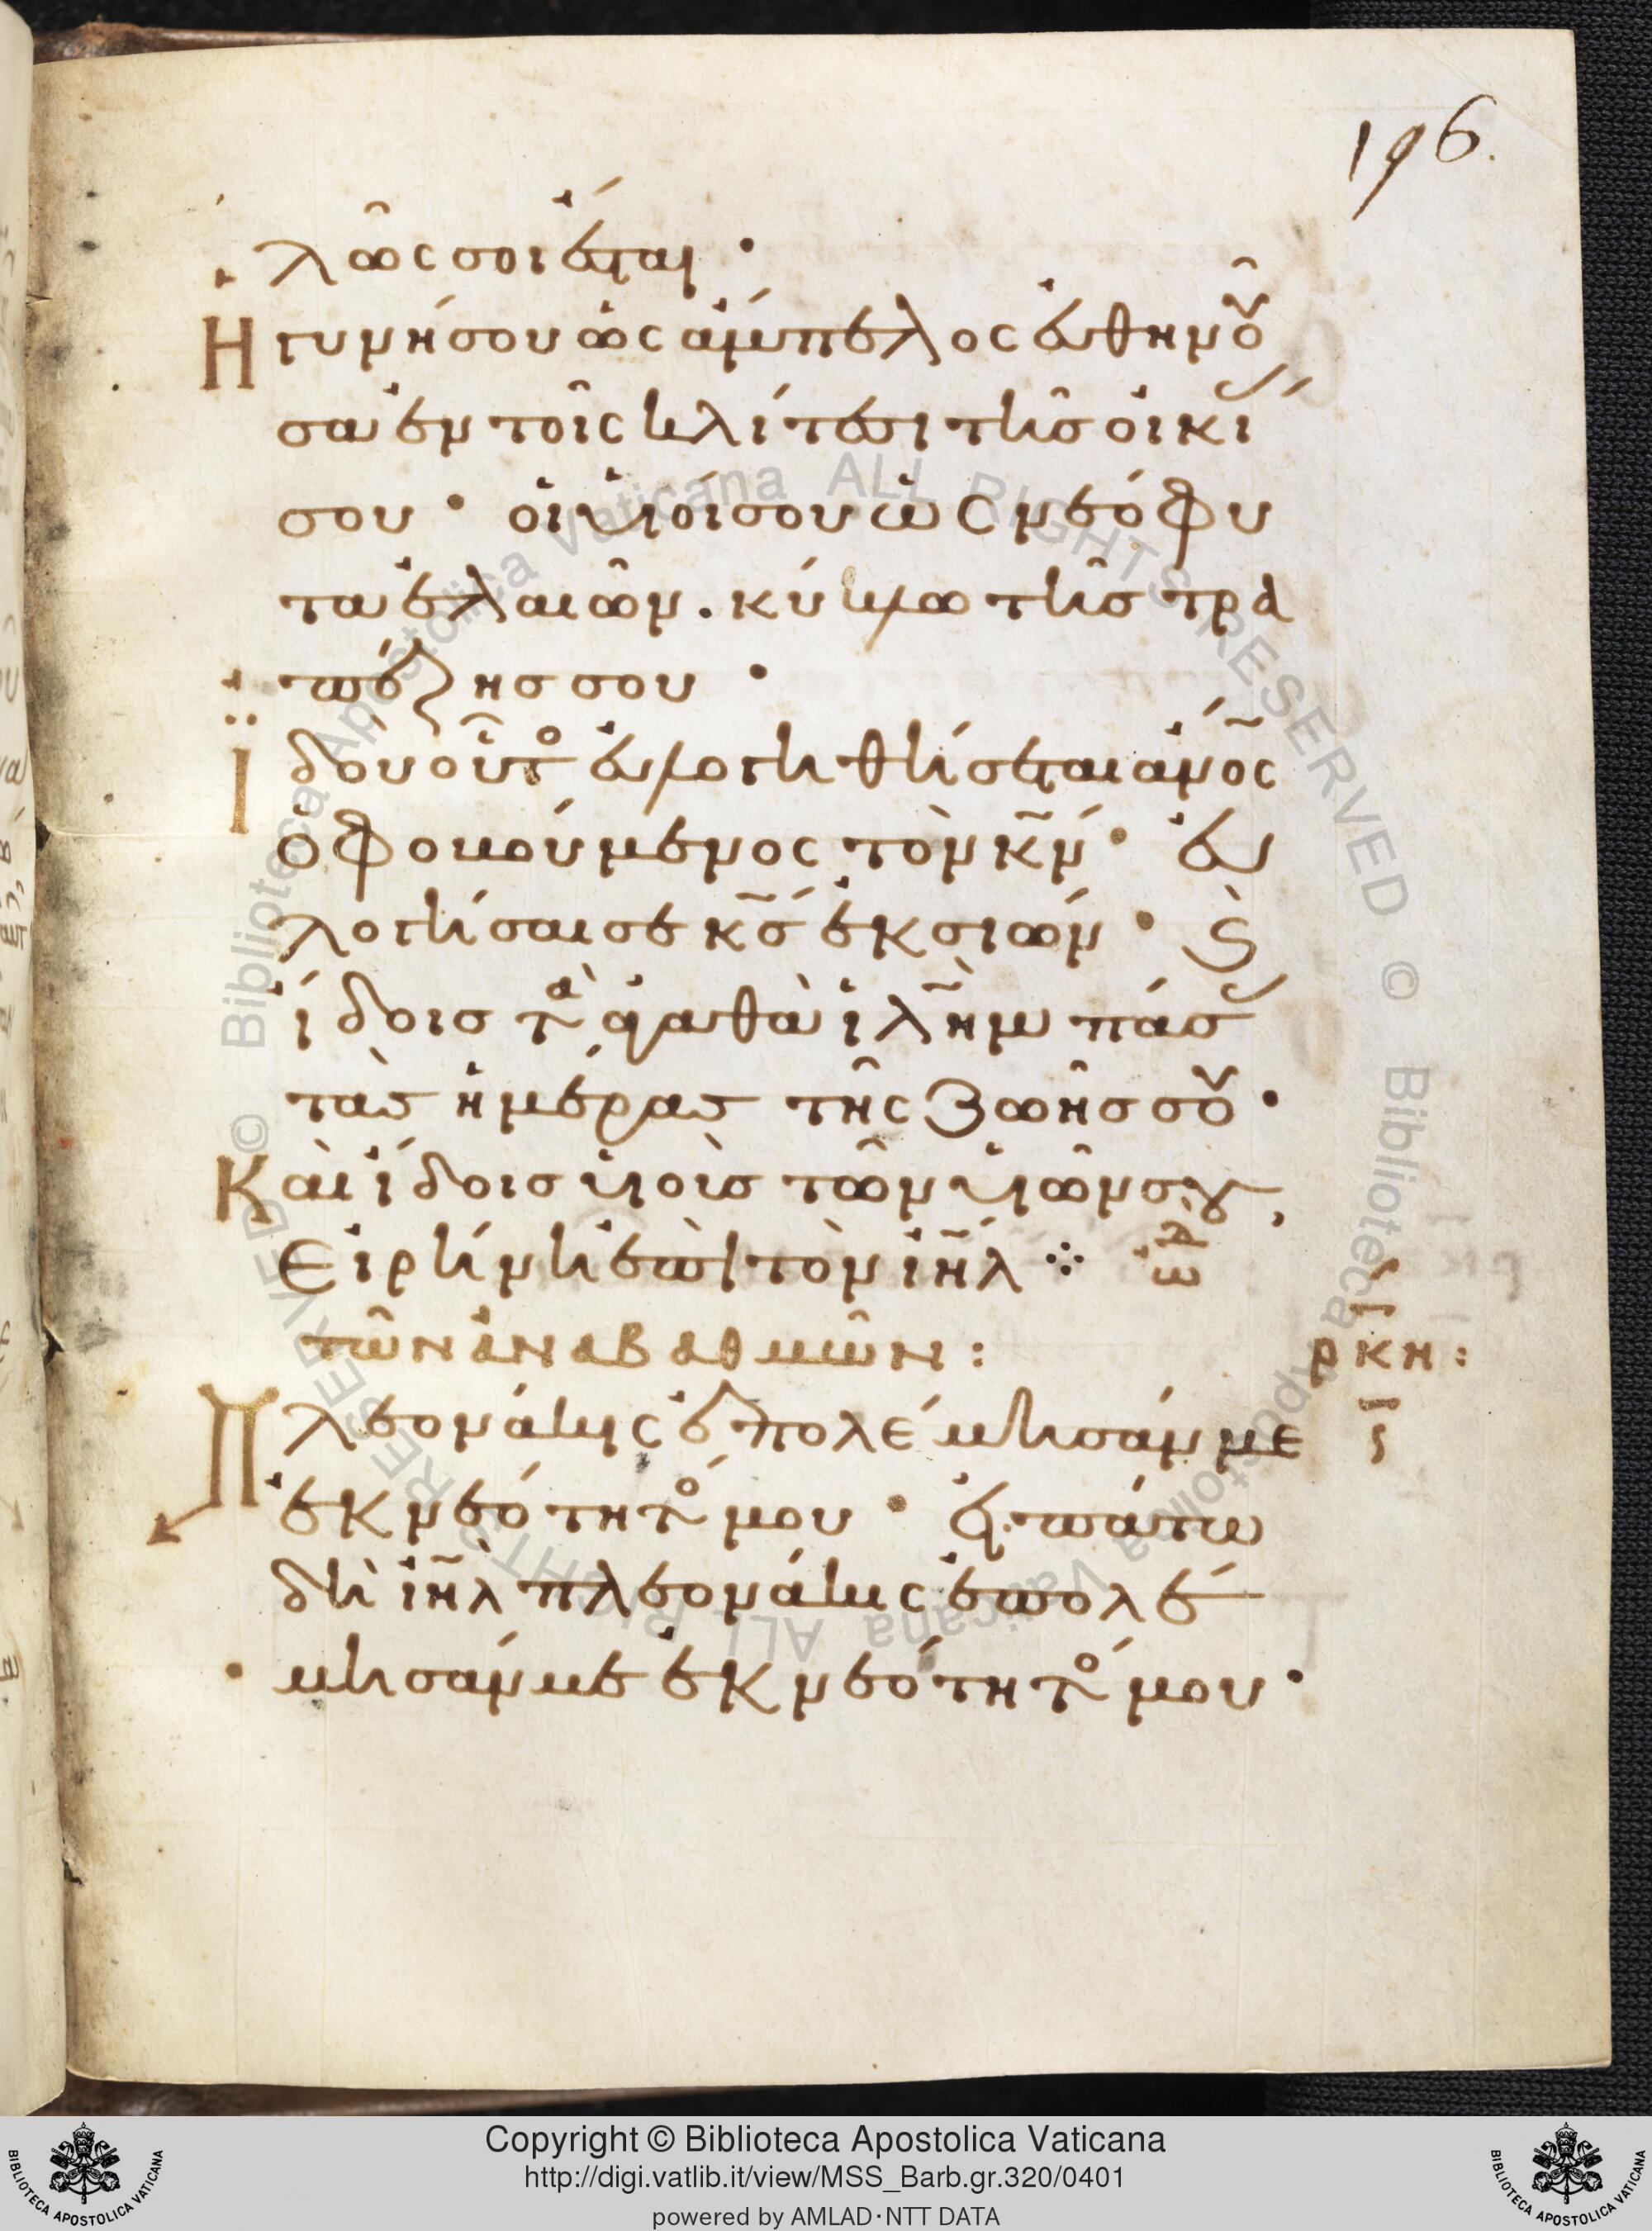 196.
λῶς σοι ἔσται ·
Ἡ γυνή σου ὡς ἄμπελος εὐθηνοῦ
σα ἐν τοῖς κλίτεσι τῆς οἰκί
σου · οἱ υἱοί σου ὡς νεόφυ
τα ἐλαιῶν . κύκλω τῆς τρα
πέζης σου ·
Ἰδοὺ οὕτ° εὐλογηθήσεται ἄν̅ο̅ς
ὁ φοβούμενος τὸν κ̅ν̅ · εὐ
λογήσαι σε κ̅ς̅ ἐκ σιών · ϛ
ἴδοις τὰ ἀγαθὰ ἰ̅λ̅η̅μ πάσ
τὰς ἡμέρας τῆς ζωῆς σοῦ ·
Καὶ ἴδοις υἱοὺς τῶν υἱῶν σου,
Εἰρήνη ἐπὶ τὸν ἰ̅η̅λ ⁘ ὠ̅δ̅
τῶν ἀναβαθμῶν : ρκη :
Πλεονάκις ἐπολέμησάν με
ἐκ νεότητό μου · εἰπάτω
δὴ ἰ̅η̅λ πλεονάκις ἐπολέ
μησάν με ἐκ νεότητό μου ·
© Biblioteca Apostolica Vaticana ALL RIGHTS RESERVED © Biblioteca Apostolica Vaticana ALL RIGHTS RESERVED
Copyright © Biblioteca Apostolica Vaticana
http://digi.vatlib.it/view/MSS_Barb.gr.320/0401
powered by AMLAD·NTT DATA
BIBLIOTECA APOSTOLICA VATICANA
BIBLIOTECA APOSTOLICA VATICANA